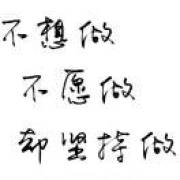 不想做
不愿做
却坚持做